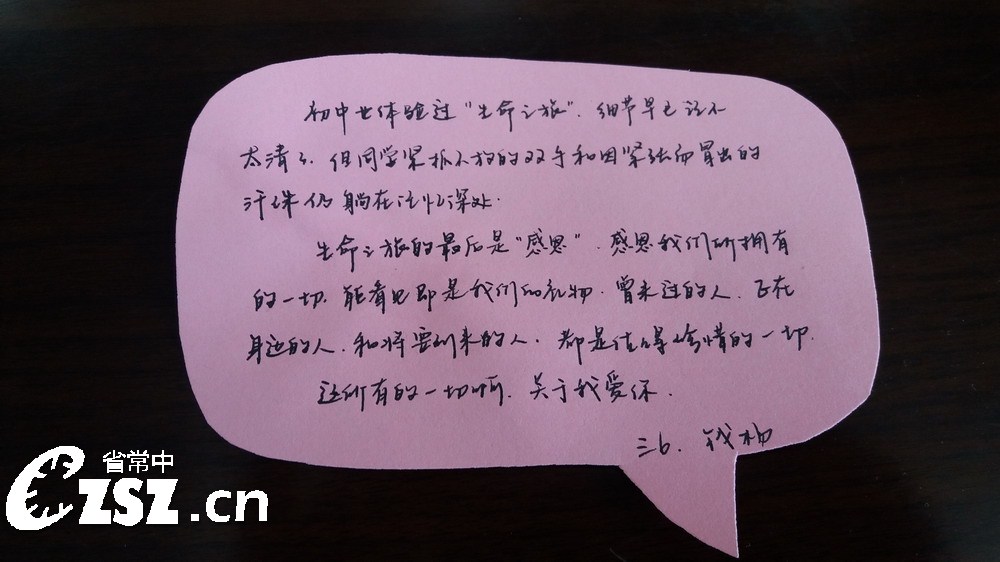 初中也体验过“生命之旅”.细节早已记不
太清了.但同学紧抓不放的双手和因紧张而冒出的
汗珠仍躺在记忆深处.
生命之旅的最后是“感恩”.感恩我们所拥有
的一切.能看见即是我们的礼物.曾来过的人.正在
身边的人.和将要到来的人.都是值得珍惜的一切.
这所有的一切啊.关于我爱你.
三6.钱柳
省常中
CZSZ.cn